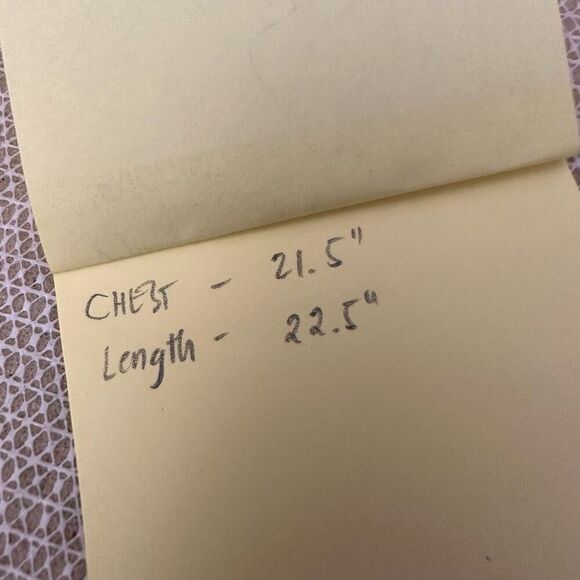 CHEST - 21.5"
Length - 22.5"